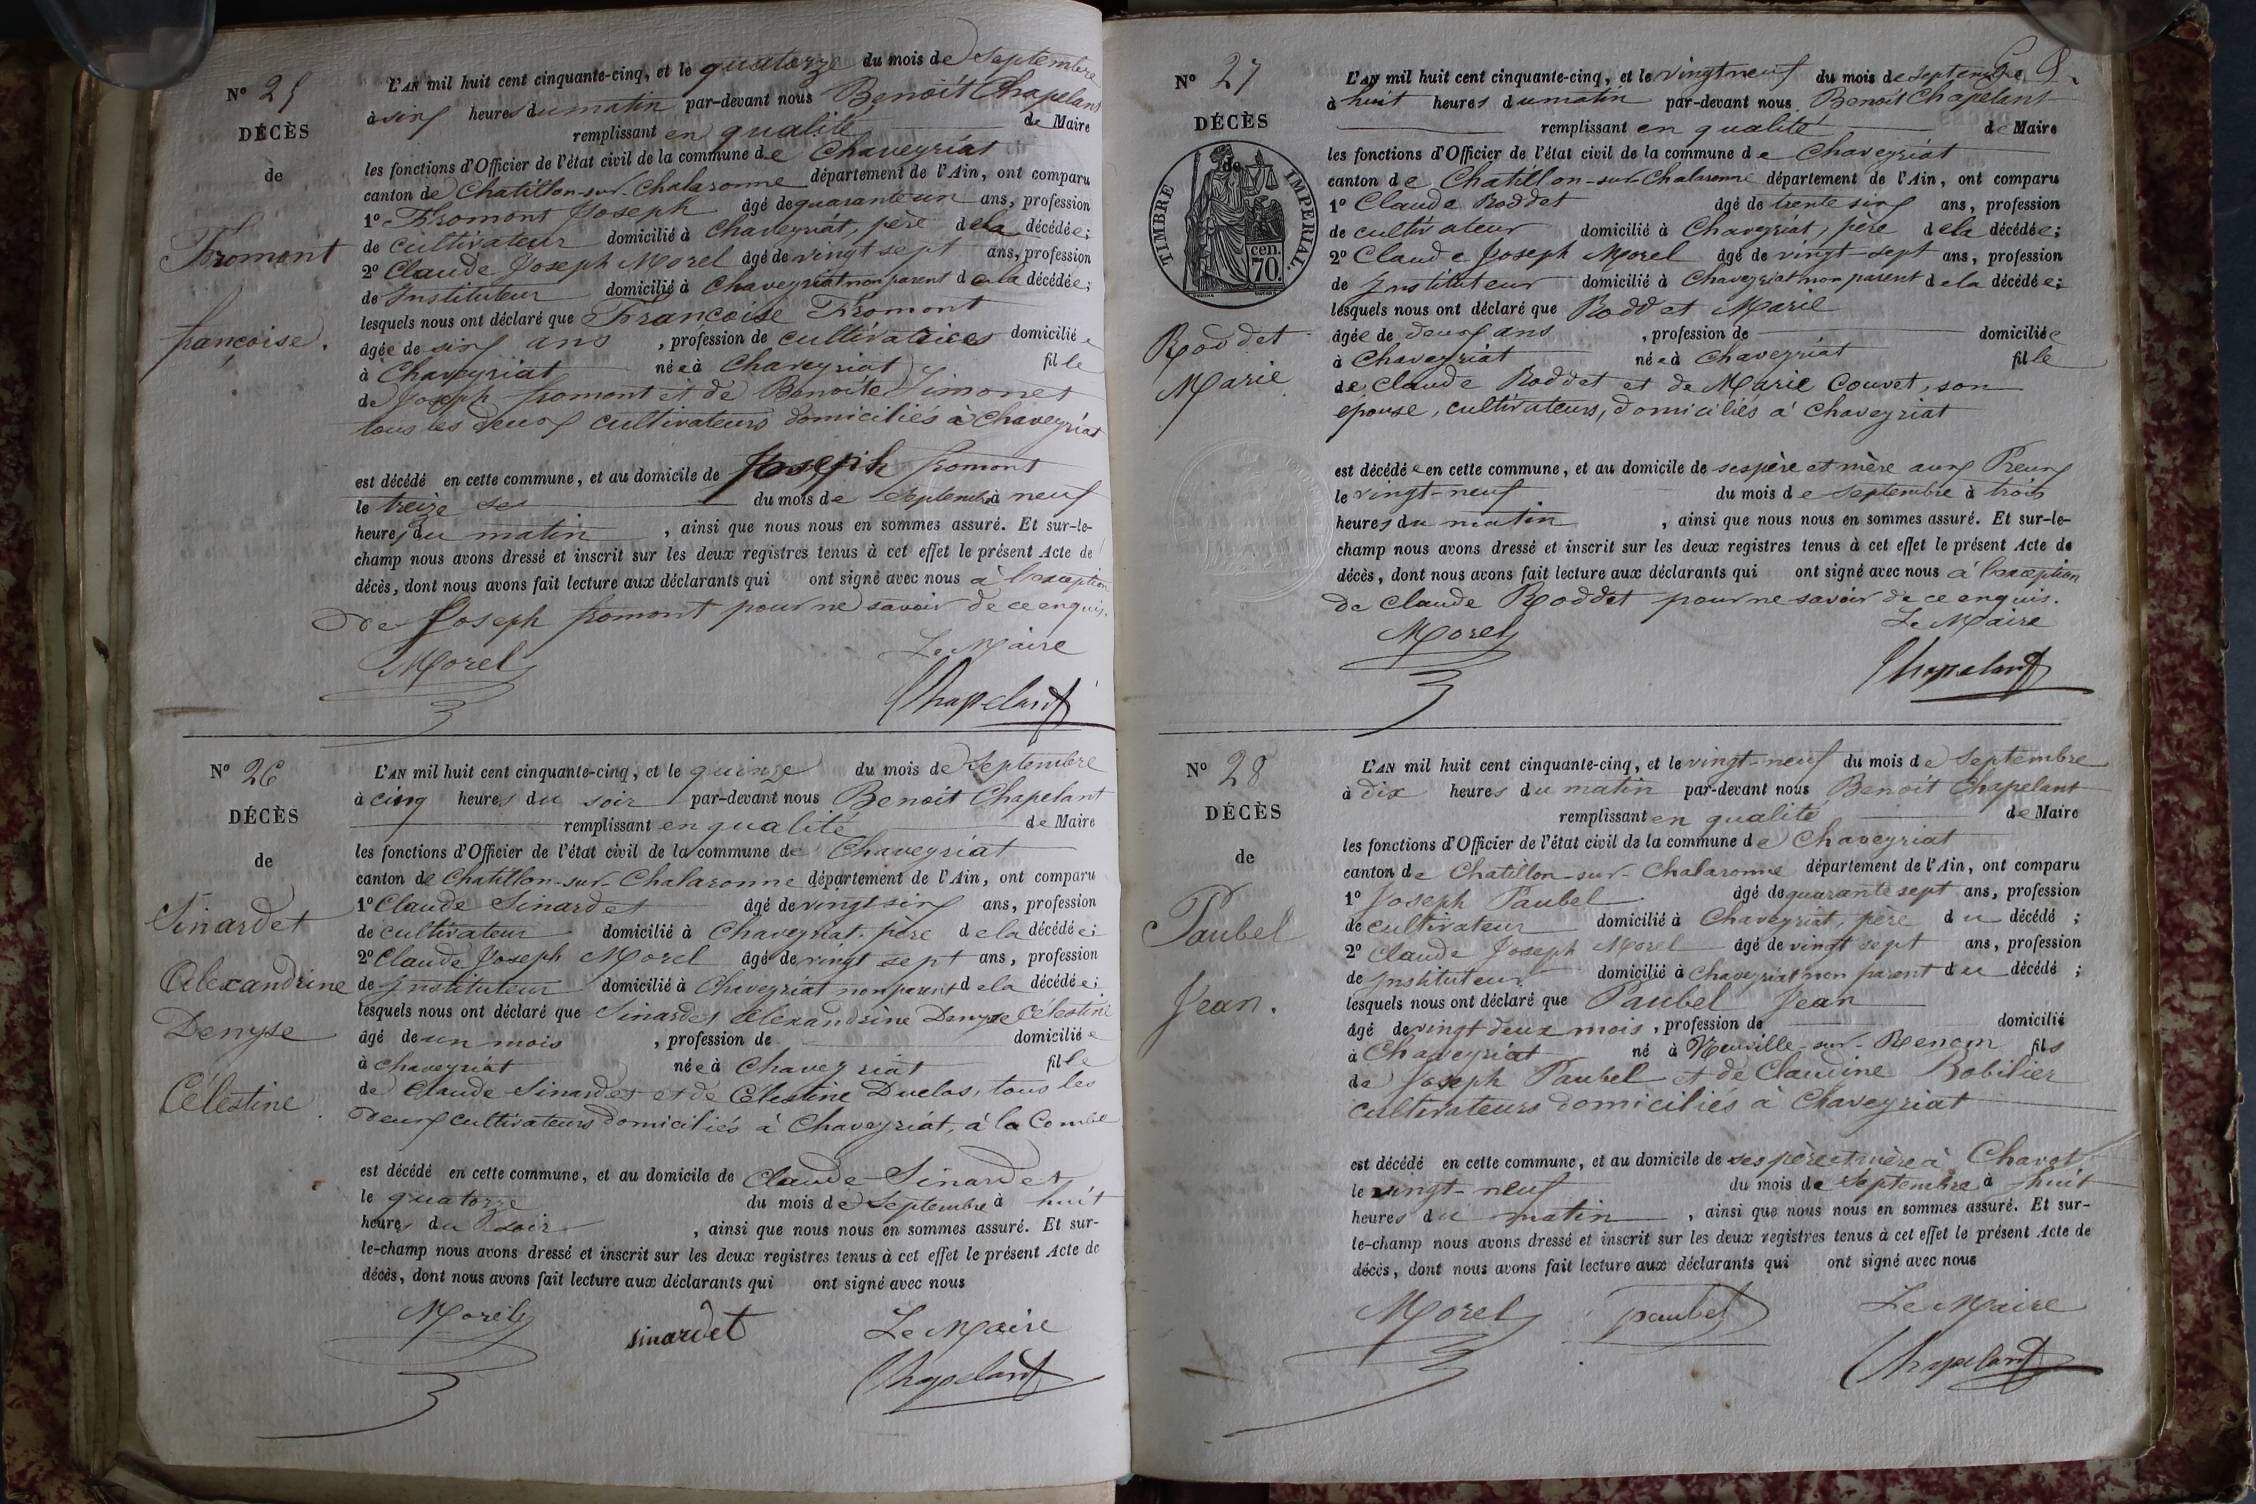 Nº 25
DÉCÈS
de
Fromont
françoise.
L'AN mil huit cent cinquante-cinq, et le quatorze du mois de Septembre
à six heures du matin par-devant nous Benoît Chapelant
remplissant en qualité de Maire
les fonctions d'Officier de l'état civil de la commune de Chaveyriat
canton de Chatillon-sur-Chalaronne département de l'Ain, ont comparu
1º Fromont Joseph âgé de quarante un ans, profession
de cultivateur domicilié à Chaveyriat, père de la décédée;
2º Claude Joseph Morel âgé de vingt sept ans, profession
de Instituteur domicilié à Chaveyriat non parent de la décédée;
lesquels nous ont déclaré que Françoise Fromont
âgée de six ans, profession de cultivatrices domiciliée
à Chaveyriat née à Chaveyriat fille
de Joseph fromont et de Benoite Simonet
tous les deux cultivateurs domiciliés à Chaveyriat
est décédé en cette commune, et au domicile de Joseph fromont
le treize de du mois de Septembre à neuf
heures du matin, ainsi que nous nous en sommes assuré. Et sur-le-
champ nous avons dressé et inscrit sur les deux registres tenus à cet effet le présent Acte de
décès, dont nous avons fait lecture aux déclarants qui ont signé avec nous à l'exception
de Joseph fromont pour ne savoir de ce enquis.
Le Maire
Morel
Chapelant
Nº 26
DÉCÈS
de
Sinardet
Alexandrine
Denyse
Célestine
L'AN mil huit cent cinquante-cinq, et le quinze du mois de Septembre
à cinq heures du soir par-devant nous Benoit Chapelant
remplissant en qualité de Maire
les fonctions d'Officier de l'état civil de la commune de Chaveyriat
canton de Chatillon-sur-Chalaronne département de l'Ain, ont comparu
1º Claude Sinardet âgé de vingt six ans, profession
de cultivateur domicilié à Chaveyriat. père de la décédée;
2º Claude Joseph Morel âgé de vingt sept ans, profession
de Instituteur domicilié à Chaveyriat non parent de la décédée;
lesquels nous ont déclaré que Sinardet Alexandrine Denyse Célestine
âgé de un mois, profession de domiciliée
à chaveyriat née à Chaveyriat fille
de Claude Sinardet et de Célestine Duclos, tous les
deux cultivateurs domiciliés à Chaveyriat, à la Combe
est décédé en cette commune, et au domicile de Claude Sinardet
le quatorze du mois de Septembre à huit
heures du soir, ainsi que nous nous en sommes assuré. Et sur-
le-champ nous avons dressé et inscrit sur les deux registres tenus à cet effet le présent Acte de
décès, dont nous avons fait lecture aux déclarants qui ont signé avec nous
Morel sinardet Le Maire
Chapelant
Nº 27
DÉCÈS
de
TIMBRE IMPERIAL.
cen. 70.
Roddet
Marie
L'AN mil huit cent cinquante-cinq, et le vingt neuf du mois de septembre
à huit heures du matin par-devant nous Benoit Chapelant
remplissant en qualité de Maire
les fonctions d'Officier de l'état civil de la commune de Chaveyriat
canton de Chatillon-sur-Chalaronne département de l'Ain, ont comparu
1º Claude Roddet âgé de trente six ans, profession
de cultivateur domicilié à Chaveyriat, père de la décédée;
2º Claude Joseph Morel âgé de vingt-sept ans, profession
de Instituteur domicilié à Chaveyriat non parent de la décédée;
lesquels nous ont déclaré que Roddet Marie
âgée de deux ans, profession de domiciliée
à Chaveyriat née à Chaveyriat fille
de Claude Roddet et de Marie Couvet, son
épouse, cultivateurs, domiciliés à Chaveyriat
est décédée en cette commune, et au domicile de ses père et mère aux Preux
le vingt-neuf du mois de Septembre à trois
heures du matin, ainsi que nous nous en sommes assuré. Et sur-le-
champ nous avons dressé et inscrit sur les deux registres tenus à cet effet le présent Acte de
décès, dont nous avons fait lecture aux déclarants qui ont signé avec nous à l'exception
de Claude Roddet pour ne savoir de ce enquis.
Le Maire
Morel
Chapelant
Nº 28
DÉCÈS
de
Paubel
Jean.
L'AN mil huit cent cinquante-cinq, et le vingt-neuf du mois de Septembre
à dix heures du matin par-devant nous Benoit Chapelant
remplissant en qualité de Maire
les fonctions d'Officier de l'état civil de la commune de Chaveyriat
canton de Chatillon-sur-Chalaronne département de l'Ain, ont comparu
1º Joseph Paubel âgé de quarante sept ans, profession
de cultivateur domicilié à Chaveyriat, père du décédé;
2º Claude Joseph Morel âgé de vingt sept ans, profession
de Instituteur domicilié à Chaveyriat non parent du décédé;
lesquels nous ont déclaré que Paubel Jean
âgé de vingt deux mois, profession de domicilié
à Chaveyriat né à Neuville-sur-Renom fils
de Joseph Paubel et de Claudine Robilier
cultivateurs domiciliés à Chaveyriat
est décédé en cette commune, et au domicile de ses père et mère à Chavot
le vingt-neuf du mois de Septembre à huit
heures du matin, ainsi que nous nous en sommes assuré. Et sur-
le-champ nous avons dressé et inscrit sur les deux registres tenus à cet effet le présent Acte de
décès, dont nous avons fait lecture aux déclarants qui ont signé avec nous
Morel paubel Le Maire
Chapelant